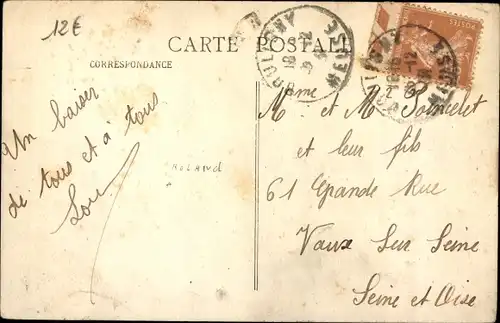 12€
CARTE POSTALE
CORRESPONDANCE
MEUSE
POSTES
Un baiser
de tous et à tous
Lou
ROLAND
M et Mme Poincelet
et leur fils
61 Grande Rue
Vaux Sur Seine
Seine et Oise